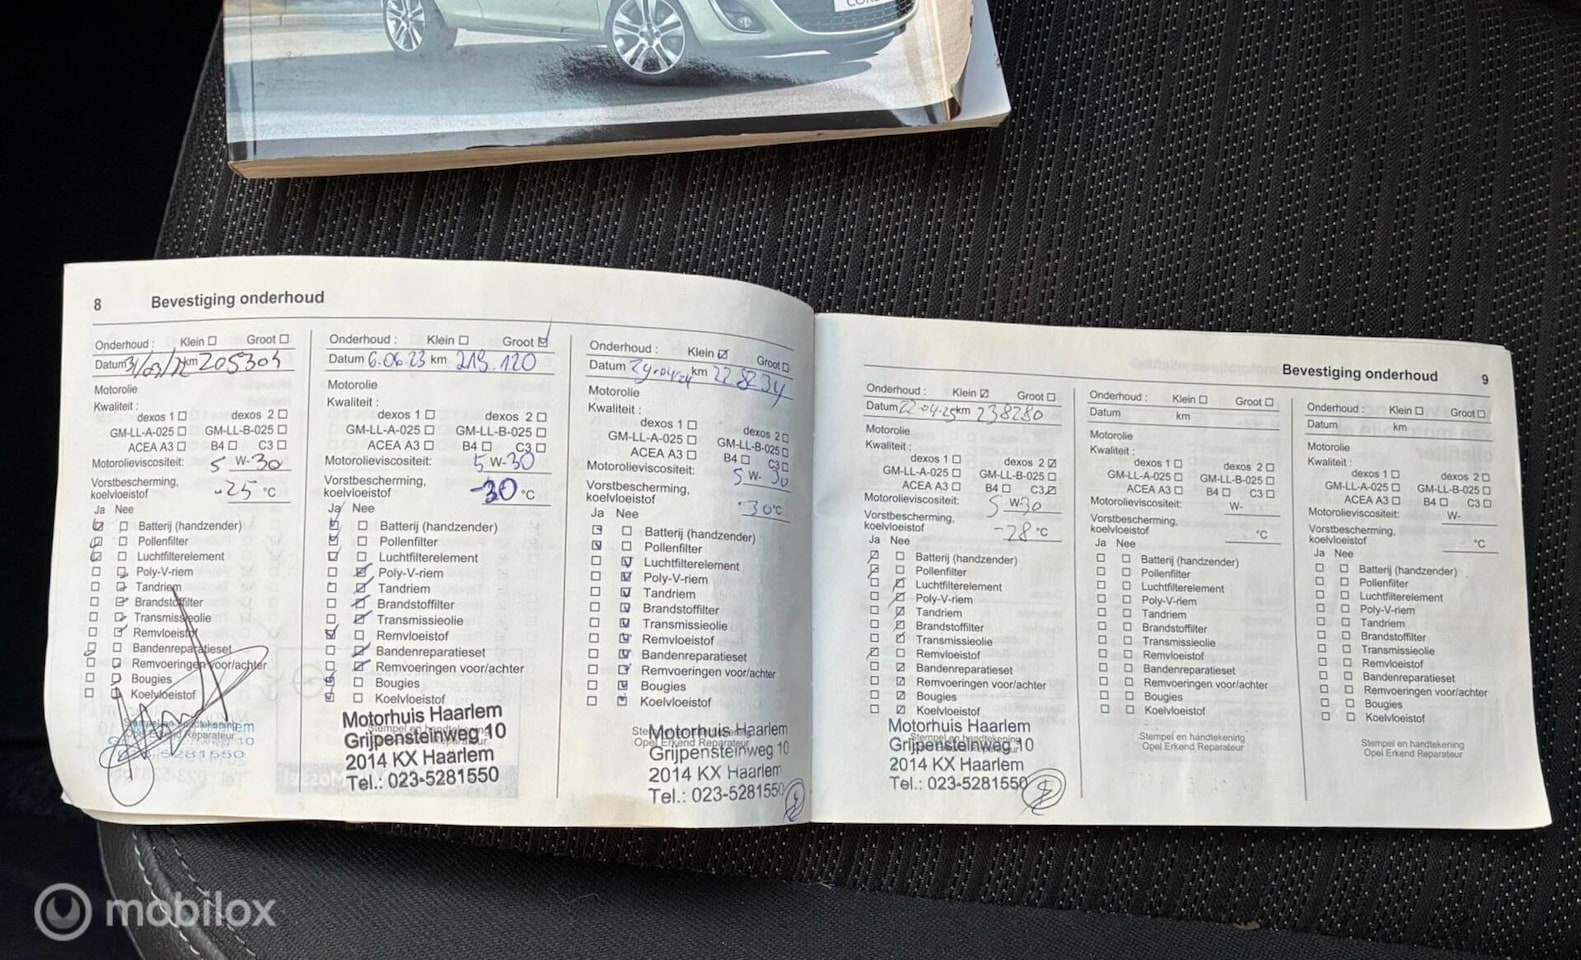 8 Bevestiging onderhoud
Onderhoud : Klein Groot
Datum km 205304
Motorolie
Kwaliteit :
dexos 1 dexos 2
GM-LL-A-025 GM-LL-B-025
ACEA A3 B4 C3
Motorolieviscositeit: 5 W-30
Vorstbescherming,
koelvloeistof -25 °C
Ja Nee
Batterij (handzender)
Pollenfilter
Luchtfilterelement
Poly-V-riem
Tandriem
Brandstoffilter
Transmissieolie
Remvloeistof
Bandenreparatieset
Remvoeringen voor/achter
Bougies
Koelvloeistof
Stempel en handtekening
5281550
Onderhoud : Klein Groot
Datum 6.06.23 km 219.120
Motorolie
Kwaliteit :
dexos 1 dexos 2
GM-LL-A-025 GM-LL-B-025
ACEA A3 B4 C3
Motorolieviscositeit: 5 W-30
Vorstbescherming,
koelvloeistof -30 °C
Ja Nee
Batterij (handzender)
Pollenfilter
Luchtfilterelement
Poly-V-riem
Tandriem
Brandstoffilter
Transmissieolie
Remvloeistof
Bandenreparatieset
Remvoeringen voor/achter
Bougies
Koelvloeistof
Motorhuis Haarlem
Grijpensteinweg 10
2014 KX Haarlem
Tel.: 023-5281550
Onderhoud : Klein Groot
Datum km 228234
Motorolie
Kwaliteit :
dexos 1 dexos 2
GM-LL-A-025 GM-LL-B-025
ACEA A3 B4 C3
Motorolieviscositeit: 5 W- 30
Vorstbescherming,
koelvloeistof -30°C
Ja Nee
Batterij (handzender)
Pollenfilter
Luchtfilterelement
Poly-V-riem
Tandriem
Brandstoffilter
Transmissieolie
Remvloeistof
Bandenreparatieset
Remvoeringen voor/achter
Bougies
Koelvloeistof
Stempel en handtekening
Opel Erkend Reparateur
Motorhuis Haarlem
Grijpensteinweg 10
2014 KX Haarlem
Tel.: 023-5281550
Bevestiging onderhoud 9
Onderhoud : Klein Groot
Datum 22-04-25 km 238280
Motorolie
Kwaliteit :
dexos 1 dexos 2
GM-LL-A-025 GM-LL-B-025
ACEA A3 B4 C3
Motorolieviscositeit: 5 W-30
Vorstbescherming,
koelvloeistof -28 °C
Ja Nee
Batterij (handzender)
Pollenfilter
Luchtfilterelement
Poly-V-riem
Tandriem
Brandstoffilter
Transmissieolie
Remvloeistof
Bandenreparatieset
Remvoeringen voor/achter
Bougies
Koelvloeistof
Motorhuis Haarlem
Stempel en handtekening
Grijpensteinweg 10
2014 KX Haarlem
Tel.: 023-5281550
Onderhoud : Klein Groot
Datum km
Motorolie
Kwaliteit :
dexos 1 dexos 2
GM-LL-A-025 GM-LL-B-025
ACEA A3 B4 C3
Motorolieviscositeit: W-
Vorstbescherming,
koelvloeistof °C
Ja Nee
Batterij (handzender)
Pollenfilter
Luchtfilterelement
Poly-V-riem
Tandriem
Brandstoffilter
Transmissieolie
Remvloeistof
Bandenreparatieset
Remvoeringen voor/achter
Bougies
Koelvloeistof
Stempel en handtekening
Opel Erkend Reparateur
Onderhoud : Klein Groot
Datum km
Motorolie
Kwaliteit :
dexos 1 dexos 2
GM-LL-A-025 GM-LL-B-025
ACEA A3 B4 C3
Motorolieviscositeit: W-
Vorstbescherming,
koelvloeistof °C
Ja Nee
Batterij (handzender)
Pollenfilter
Luchtfilterelement
Poly-V-riem
Tandriem
Brandstoffilter
Transmissieolie
Remvloeistof
Bandenreparatieset
Remvoeringen voor/achter
Bougies
Koelvloeistof
Stempel en handtekening
Opel Erkend Reparateur
mobilox